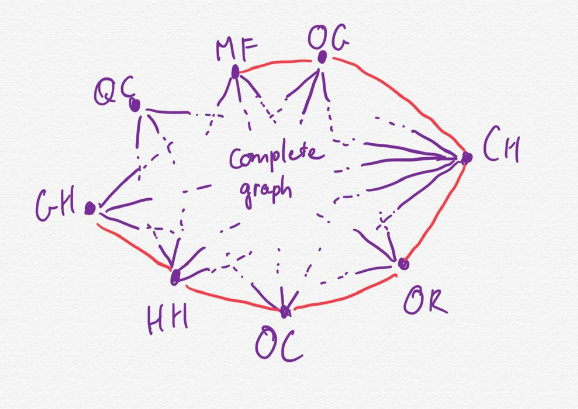 MF
OG
QC
CH
Complete
graph
GH
OR
HH
OC